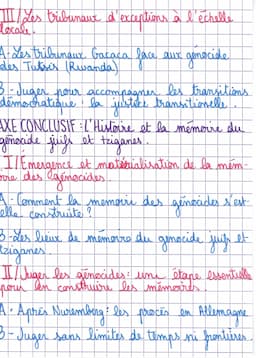 III/ Les tribunaux d'exceptions à l'échelle
locale.
A- Les tribunaux Gacaca face aux genocide
des Tutsis (Rwanda)
B- Juger pour accompagner les transitions
démocratique : la justice transitionelle.
AXE CONCLUSIF : L'Histoire et la mémoire du
génocide juifs et tziganes.
I/ Emergence et matérialisation de la mém-
oire des génocides.
A- Comment la memoire des génocides s'est-
elle construite ?
B- Les lieux de mémoire du genocide juif et
tziganes.
II/ Juger les génocides : une étape essentielle
pour en construire les mémoires.
A- Après Nuremberg : les procès en Allemagne
B- Juger sans limites de temps ni frontières.